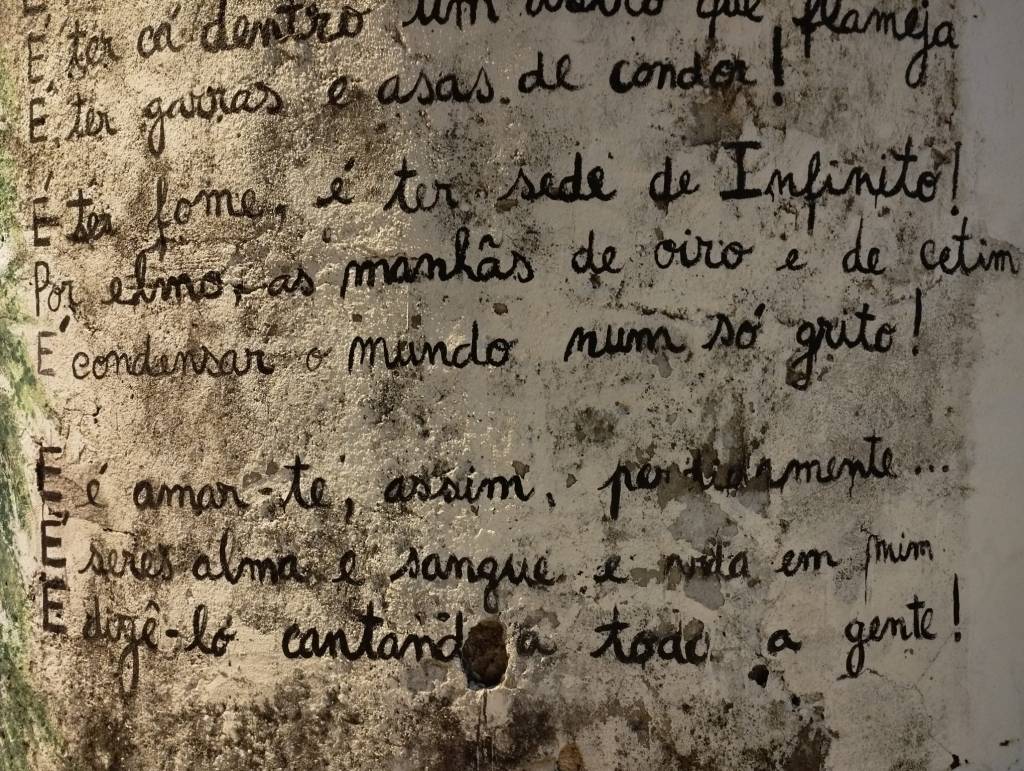 É ter cá dentro um astro que flameja
É ter garras e asas de condor!
É ter fome, é ter sede de Infinito!
Por elmo, as manhãs de oiro e de cetim
É condensar o mundo num só grito!
E é amar-te, assim, perdidamente...
É seres alma e sangue e vida em mim
E dizê-lo cantando a toda a gente!